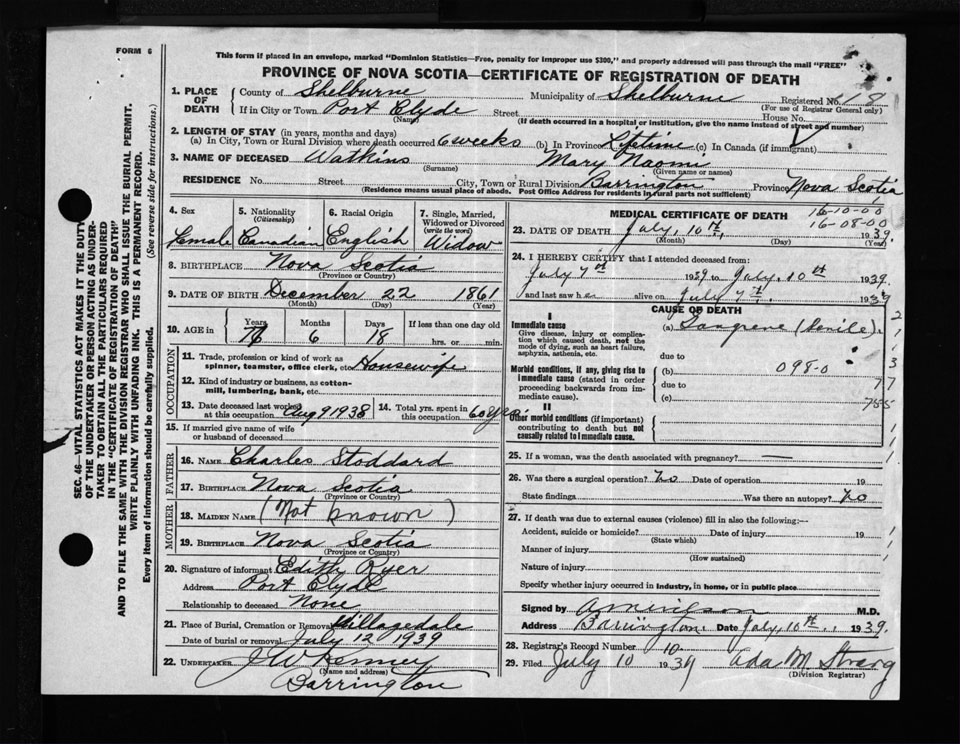 FORM 6
This form if placed in an envelope, marked "Dominion Statistics—Free, penalty for improper use $300," and properly addressed will pass through the mail "FREE"
PROVINCE OF NOVA SCOTIA—CERTIFICATE OF REGISTRATION OF DEATH
SEC. 46—VITAL STATISTICS ACT MAKES IT THE DUTY
OF THE UNDERTAKER OR PERSON ACTING AS UNDER-
TAKER TO OBTAIN ALL THE PARTICULARS REQUIRED
IN THE "CERTIFICATE OF REGISTRATION OF DEATH"
AND TO FILE THE SAME WITH THE DIVISION REGISTRAR WHO SHALL ISSUE THE BURIAL PERMIT.
WRITE PLAINLY WITH UNFADING INK. THIS IS A PERMANENT RECORD.
Every item of information should be carefully supplied. (See reverse side for instructions.)
1. PLACE OF DEATH County of Shelburne Municipality of Shelburne Registered No. 118
(For use of Registrar General only)
If in City or Town Port Clyde Street House No.
(Name) (If death occurred in a hospital or institution, give the name instead of street and number)
2. LENGTH OF STAY (in years, months and days)
(a) In City, Town or Rural Division where death occurred 6 weeks (b) In Province Lifetime (c) In Canada (if immigrant)
3. NAME OF DECEASED Watkins Mary Naomi
(Surname) (Given name or names)
RESIDENCE No. Street City, Town or Rural Division Barrington Province Nova Scotia
(Residence means usual place of abode. Post Office Address for residents in rural parts not sufficient)
4. Sex 5. Nationality (Citizenship) 6. Racial Origin 7. Single, Married, Widowed or Divorced (write the word)
Female Canadian English Widow
8. BIRTHPLACE Nova Scotia
(Province or Country)
9. DATE OF BIRTH December 22 1861
(Month) (Day) (Year)
10. AGE in Years Months Days If less than one day old
6 18 hrs. or min.
OCCUPATION
11. Trade, profession or kind of work as spinner, teamster, office clerk, etc. Housewife
12. Kind of industry or business, as cotton-mill, lumbering, bank, etc.
13. Date deceased last worked at this occupation Aug 9 1938 14. Total yrs. spent in this occupation 60 yrs.
15. If married give name of wife or husband of deceased
FATHER
16. NAME Charles Stoddard
17. BIRTHPLACE Nova Scotia
(Province or Country)
MOTHER
18. MAIDEN NAME (Not known)
19. BIRTHPLACE Nova Scotia
(Province or Country)
20. Signature of informant Edith Ryer
Address Port Clyde
Relationship to deceased None
21. Place of Burial, Cremation or Removal Villagedale
Date of burial or removal July 12 1939
22. UNDERTAKER J W Kenney
(Name and address)
Barrington
MEDICAL CERTIFICATE OF DEATH 16-10-00
16-08-00
23. DATE OF DEATH July, 10th, 1939.
(Month) (Day) (Year)
24. I HEREBY CERTIFY that I attended deceased from:
July 7th 1939 to July, 10th 1939
and last saw her alive on July 7th. 1939
CAUSE OF DEATH
I
Immediate cause (a) Gangrene (Senile).
Give disease, injury or complica-
tion which caused death, not the
mode of dying, such as heart failure,
asphyxia, asthenia, etc. due to
Morbid conditions, if any, giving rise to (b) 098-0
immediate cause (stated in order due to
proceeding backwards from im-
mediate cause). (c)
2
1
1
3
77
755
II
Other morbid conditions (if important)
contributing to death but not
causally related to immediate cause.
25. If a woman, was the death associated with pregnancy? —
26. Was there a surgical operation? No Date of operation 19
State findings Was there an autopsy? No
27. If death was due to external causes (violence) fill in also the following:—
Accident, suicide or homicide? Date of injury 19
(State which)
Manner of injury
(How sustained)
Nature of injury
Specify whether injury occurred in industry, in home, or in public place
Signed by M.D.
Address Barrington. Date July, 10th., 1939.
28. Registrar's Record No. 10
29. Filed July 10 1939 Ada M. Strang
(Division Registrar)